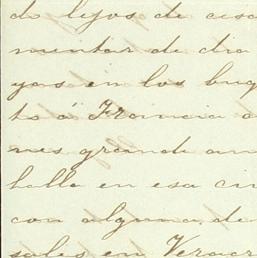 do lejos de esa
mentar de dia
yas en los buq
to á Francia a
nes grande am
halla en esa ciu
con alguna de
soles en Veracr